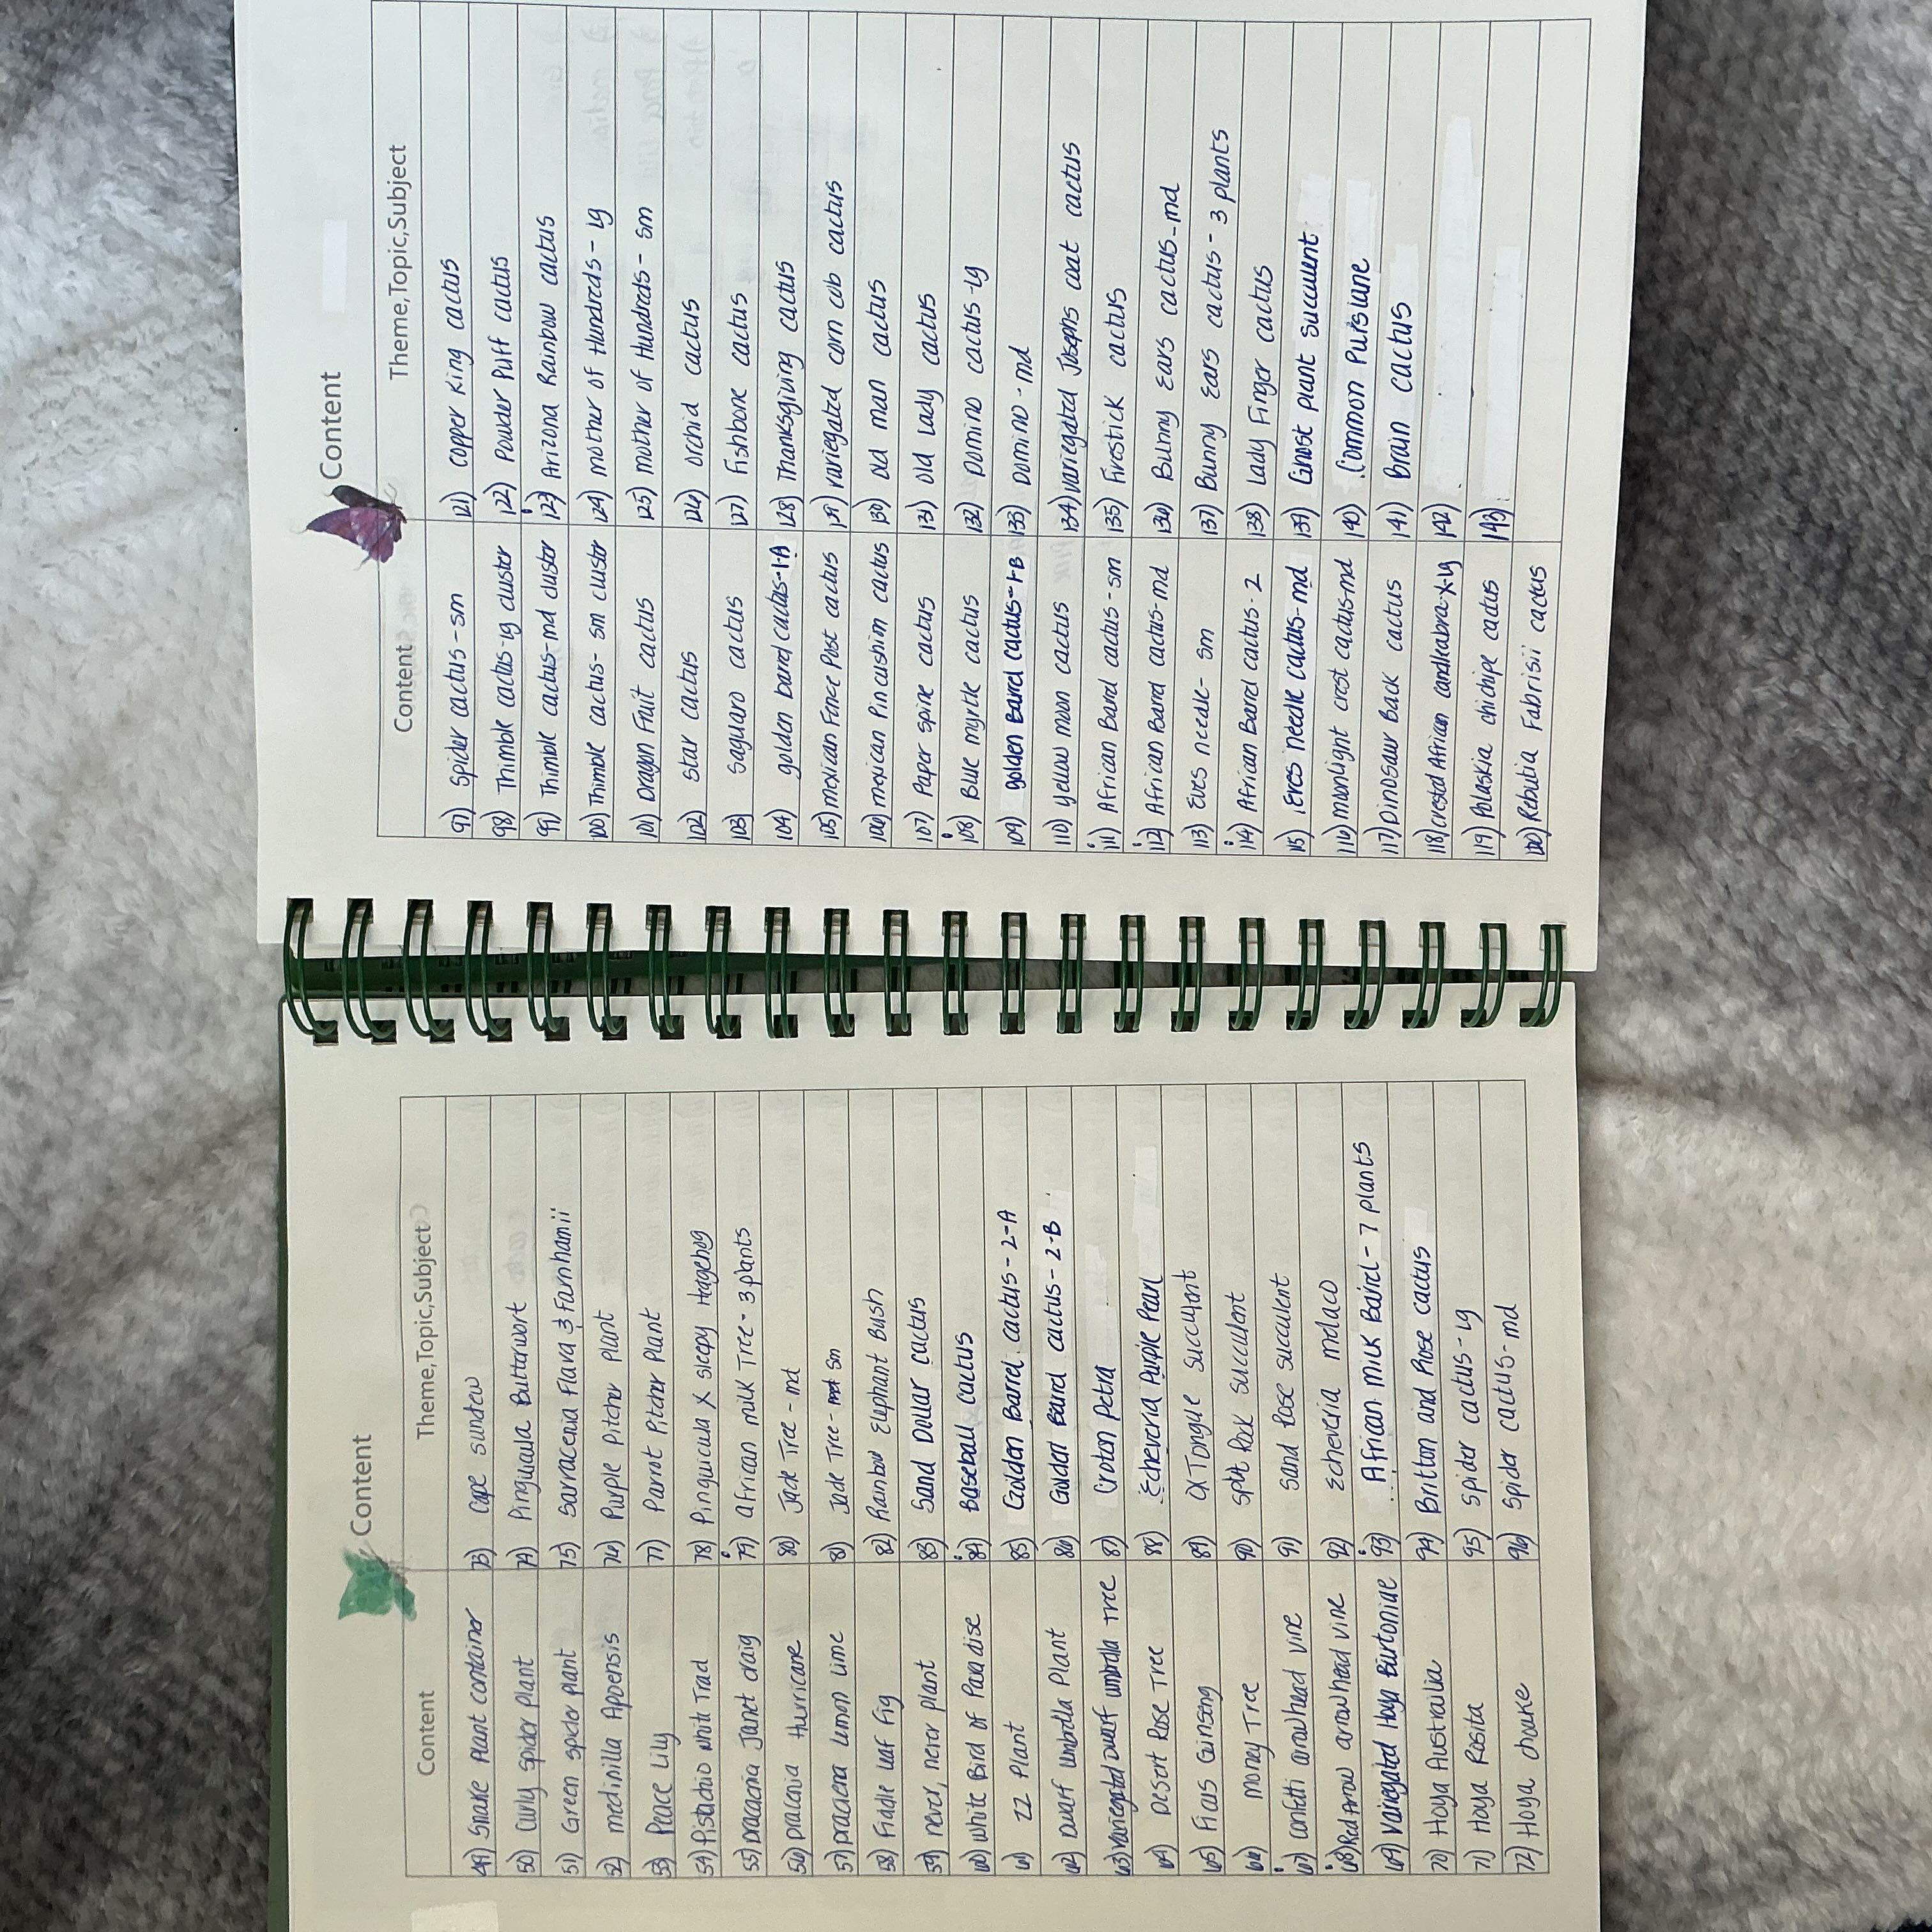 Content
Content
Theme,Topic,Subject
49) Snake Plant container
50) Curly Spider Plant
51) Green spider plant
52) medinilla Apoensis
53) Peace Lily
54) Pistachio white Trad
55) Dracaena Janet craig
56) Dracenia Hurricane
57) Dracaena Lemon Lime
58) Fiddle Leaf Fig
59) never, never plant
60) White Bird of Paradise
61) ZZ Plant
62) Dwarf Umbrella Plant
63) Variegated Dwarf umbrella Tree
64) Desert Rose Tree
65) Ficus Ginseng
66) Money Tree
67) confetti arrowhead vine
68) Red Arrow arrowhead vine
69) Variegated Hoya Burtoniae
70) Hoya Australia
71) Hoya Rosita
72) Hoya chouke
73) Cape sundew
74) Pinguicula Butterwort
75) Sarracenia Flava & Farnhamii
76) Purple Pitcher Plant
77) Parrot Pitcher Plant
78) Pinguicula X sleepy Hedgehog
79) african milk Tree - 3 plants
80) Jade Tree - md
81) Jade Tree - sm
82) Rainbow Elephant Bush
83) Sand Dollar cactus
84) Baseball cactus
85) Golden Barrel cactus - 2-A
86) Golden Barrel cactus - 2-B
87) Croton Petra
88) Echeveria Purple Pearl
89) OX Tongue Succulent
90) Split Rock Succulent
91) Sand Rose succulent
92) Echeveria molaco
93) African Milk Barrel - 7 plants
94) Britton and Rose cactus
95) Spider cactus - lg
96) Spider cactus - md
Content
Content
Theme,Topic,Subject
97) Spider cactus - sm
98) Thimble cactus - lg cluster
99) Thimble cactus - md cluster
100) Thimble cactus - sm cluster
101) Dragon Fruit cactus
102) star cactus
103) Saguaro cactus
104) golden barrel cactus - 1-A
105) mexican Fence Post cactus
106) mexican Pincushim cactus
107) Paper spine cactus
108) Blue myrtle cactus
109) golden Barrel cactus - 1-B
110) yellow moon cactus
111) African Barrel cactus - sm
112) African Barrel cactus - md
113) Eves needle - sm
114) African Barrel cactus - 2
115) Eves needle cactus - md
116) monlight crest cactus - md
117) Dinosaur Back cactus
118) crested African candleabra - x-lg
119) Polaskia chichipe catus
120) Rebutia Fabrisii cactus
121) Copper King cactus
122) Powder Puff cactus
123) Arizona Rainbow cactus
124) mother of Hundreds - lg
125) mother of Hundreds - sm
126) orchid cactus
127) Fishbone cactus
128) Thanksgiving cactus
129) variegated corn cob cactus
130) old man cactus
131) old lady cactus
132) Domino cactus - lg
133) Domino - md
134) variegated Josephs coat cactus
135) Firestick cactus
136) Bunny Ears cactus - md
137) Bunny Ears cactus - 3 plants
138) Lady Finger cactus
139) Ghost plant succulent
140) Common Purslane
141) Brain cactus
142)
143)